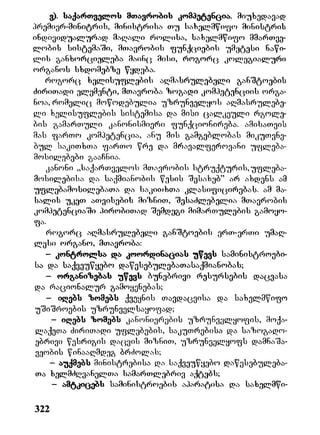 ვ). საქართველოს მთავრობის კომპეტენცია. მიუხედავად
პრემიერ-მინიტრის, მინისტრისა თუ სახელმწიფო მინისტრის
ინდივიდუალურად მაღალი როლისა, სახელმწიფო მმართვე-
ლობის სისტემაში, მთავრობის ფუნქციების უმეტესი ნაწი-
ლის განხორციელება მაინც მისი, როგორც კოლეგიალური
ორგანოს სხდომებზე წყდება.
როგორც ხელისუფლების აღმასრულებელი განშტოების
ძირითადი ელემენტი, მთავრობა ზოგადი კომპეტენციის ორგა-
ნოა, რომელიც მოწოდებულია უზრუნველყოს აღმასრულებე-
ლი ხელისუფლების სისტემისა და მისი ცალკეული რგოლე-
ბის გამართული კანონისმიერი ფუნქციონირება. ამისათვის
მას ფართო კომპეტენცია, ანუ მის გამგებლობას მიკუთვნე-
ბულ საკითხთა ფართო წრე და მრავალფეროვანი უფლება-
მოსილებები გააჩნია.
კანონი „საქართველოს მთავრობის სტრუქტურის, უფლება-
მოსილებისა და საქმიანობის წესის შესახებ“ არ ახდენს ამ
უფლებამოსილებათა და საკიიხთა კლასიფიცირებას. ამ მა-
სალის უკეთ ათვისების მიზნით, შესაძლებელია მთავრობის
კომპეტენციაში პირობითად შემდეგი მიმართულების გამოყო-
ფა.
როგორც აღმასრულებელი განშტოების ერთ-ერთი უმაღ-
ლესი ორგანო, მთავრობა:
– კონტროლსა და კოორდინაციას უწევს სამინისტროები-
სა და საქვეუწყებო დაწესებულებათასაქმიანობას;
– ორგანიზებას უწევს ბუნებრივი რესურსების დაცვასა
და რაციონალურ გამოყენებას;
– იღებს ზომებს ქვეყნის თავდაცვისა და სახელმწიფო
უშიშროების უზრუნველსაყოფად;
– იღებს ზომებს კანონიერების უზრუნველყოფის, მოქა-
ლაქეთა ძირითადი უფლებების, საკუთრებისა და საზოგადო-
ებრივი წესრიგის დაცვის მიზნით, უზრუნველყოფს დამნაშა-
ვეობის წინააღმდეგ ბრძოლას;
– აუქმებს მინისტრებისა და საქვეუწყებო დაწესებულება-
თა ხელმძღვანელთა სამართლებრივ აქტებს;
– ამტკიცებს სამინისტროების აპარატისა და სახელმწი-
322